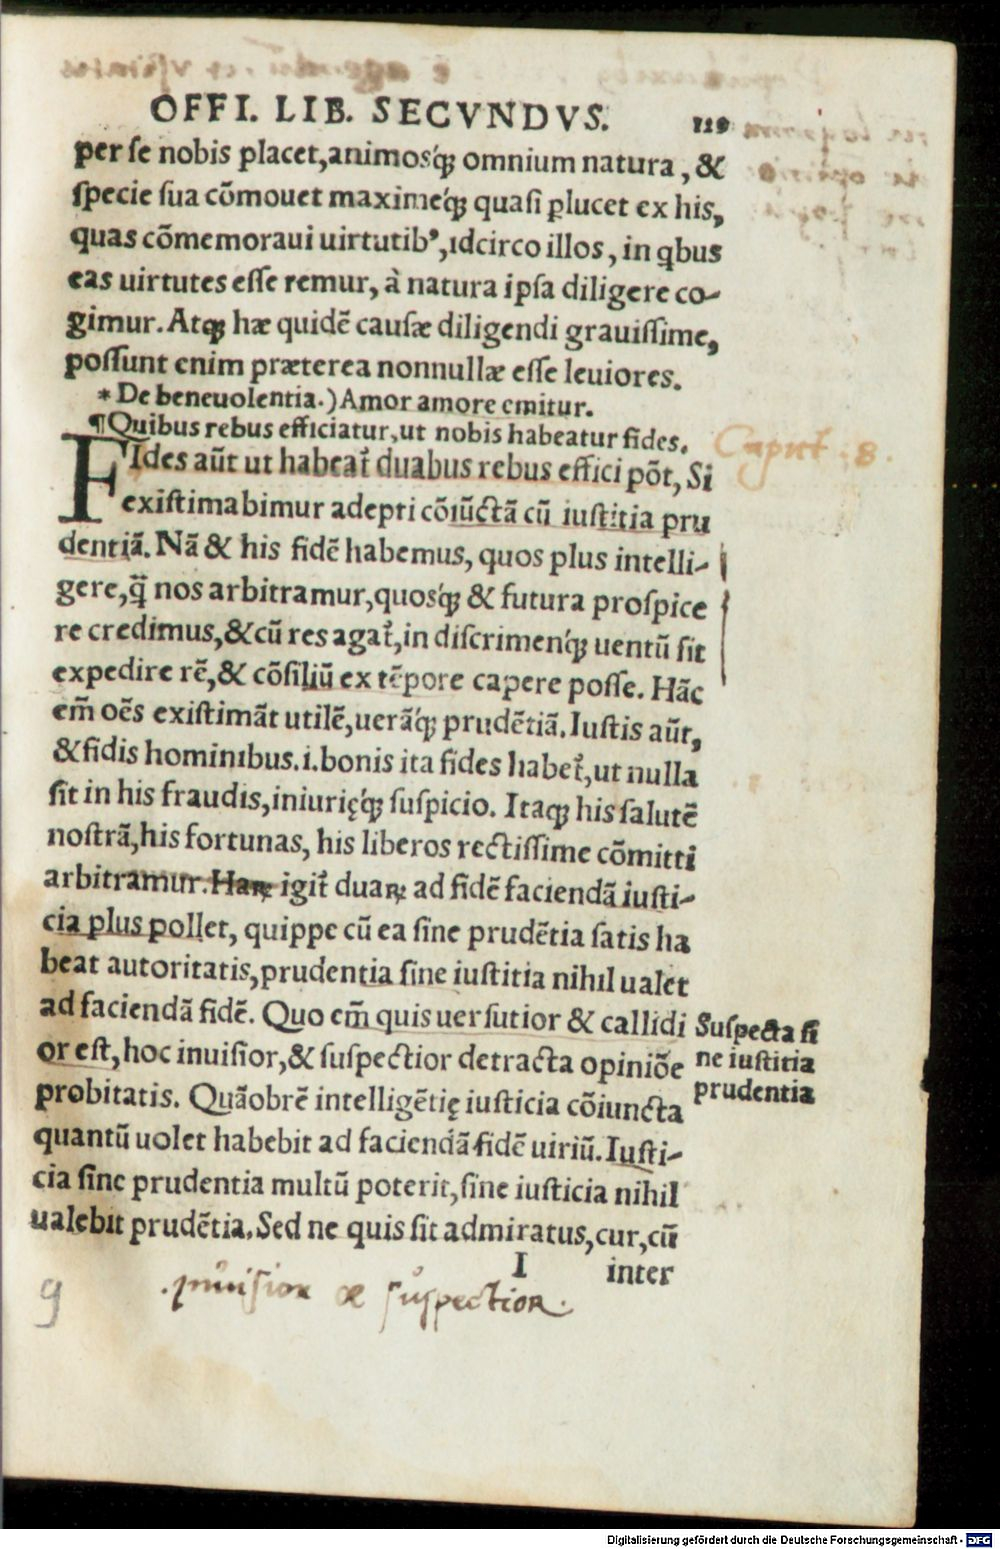 OFFI. LIB. SECVNDVS. 129
per se nobis placet, animosq́; omnium natura, &
specie sua cõmouet maximeq́; quasi ꝑlucet ex his,
quas cõmemoraui uirtutibꝰ, idcirco illos, in qbus
eas uirtutes esse remur, à natura ipsa diligere co-
gimur. Atq; hæ quidẽ causæ diligendi grauissime,
possunt enim præterea nonnullæ esse leuiores.
* De beneuolentia.) Amor amore emitur.
¶Quibus rebus efficiatur, ut nobis habeatur fides.
Caput. 8.
FIdes aũt ut habeat᷑ duabus rebus effici põt, Si
existimabimur adepti cõiũctã cũ iustitia pru
dentiã. Nã & his fidẽ habemus, quos plus intelli-
gere, q̃ nos arbitramur, quosq́; & futura prospice
re credimus, & cũ res agat᷑, in discrimenq́; uentũ sit
expedire rẽ, & cõsiliũ ex tẽpore capere posse. Hãc
em̃ oẽs existimãt utilẽ, uerãq́; prudẽtiã. Iustis aũt,
& fidis hominibus. i. bonis ita fides habet᷑, ut nulla
sit in his fraudis, iniurięq́; suspicio. Itaq; his salutẽ
nostrã, his fortunas, his liberos rectissime cõmitti
arbitramur. Haꝝ igit᷑ duaꝝ ad fidẽ faciendã iusti-
cia plus pollet, quippe cũ ea sine prudẽtia satis ha
beat autoritatis, prudentia sine iustitia nihil ualet
ad faciendã fidẽ. Quo em̃ quis uersutior & callidi
or est, hoc inuisior, & suspectior detracta opiniõe
probitatis. Quãobrẽ intelligẽtię iusticia cõiuncta
quantũ uolet habebit ad faciendã fidẽ uiriũ. Iusti-
cia sine prudentia multũ poterit, sine iusticia nihil
ualebit prudẽtia. Sed ne quis sit admiratus, cur, cũ
Suspecta si
ne iustitia
prudentia
I inter
inuisior & suspectior.
9
Digitalisierung gefördert durch die Deutsche Forschungsgemeinschaft - DFG